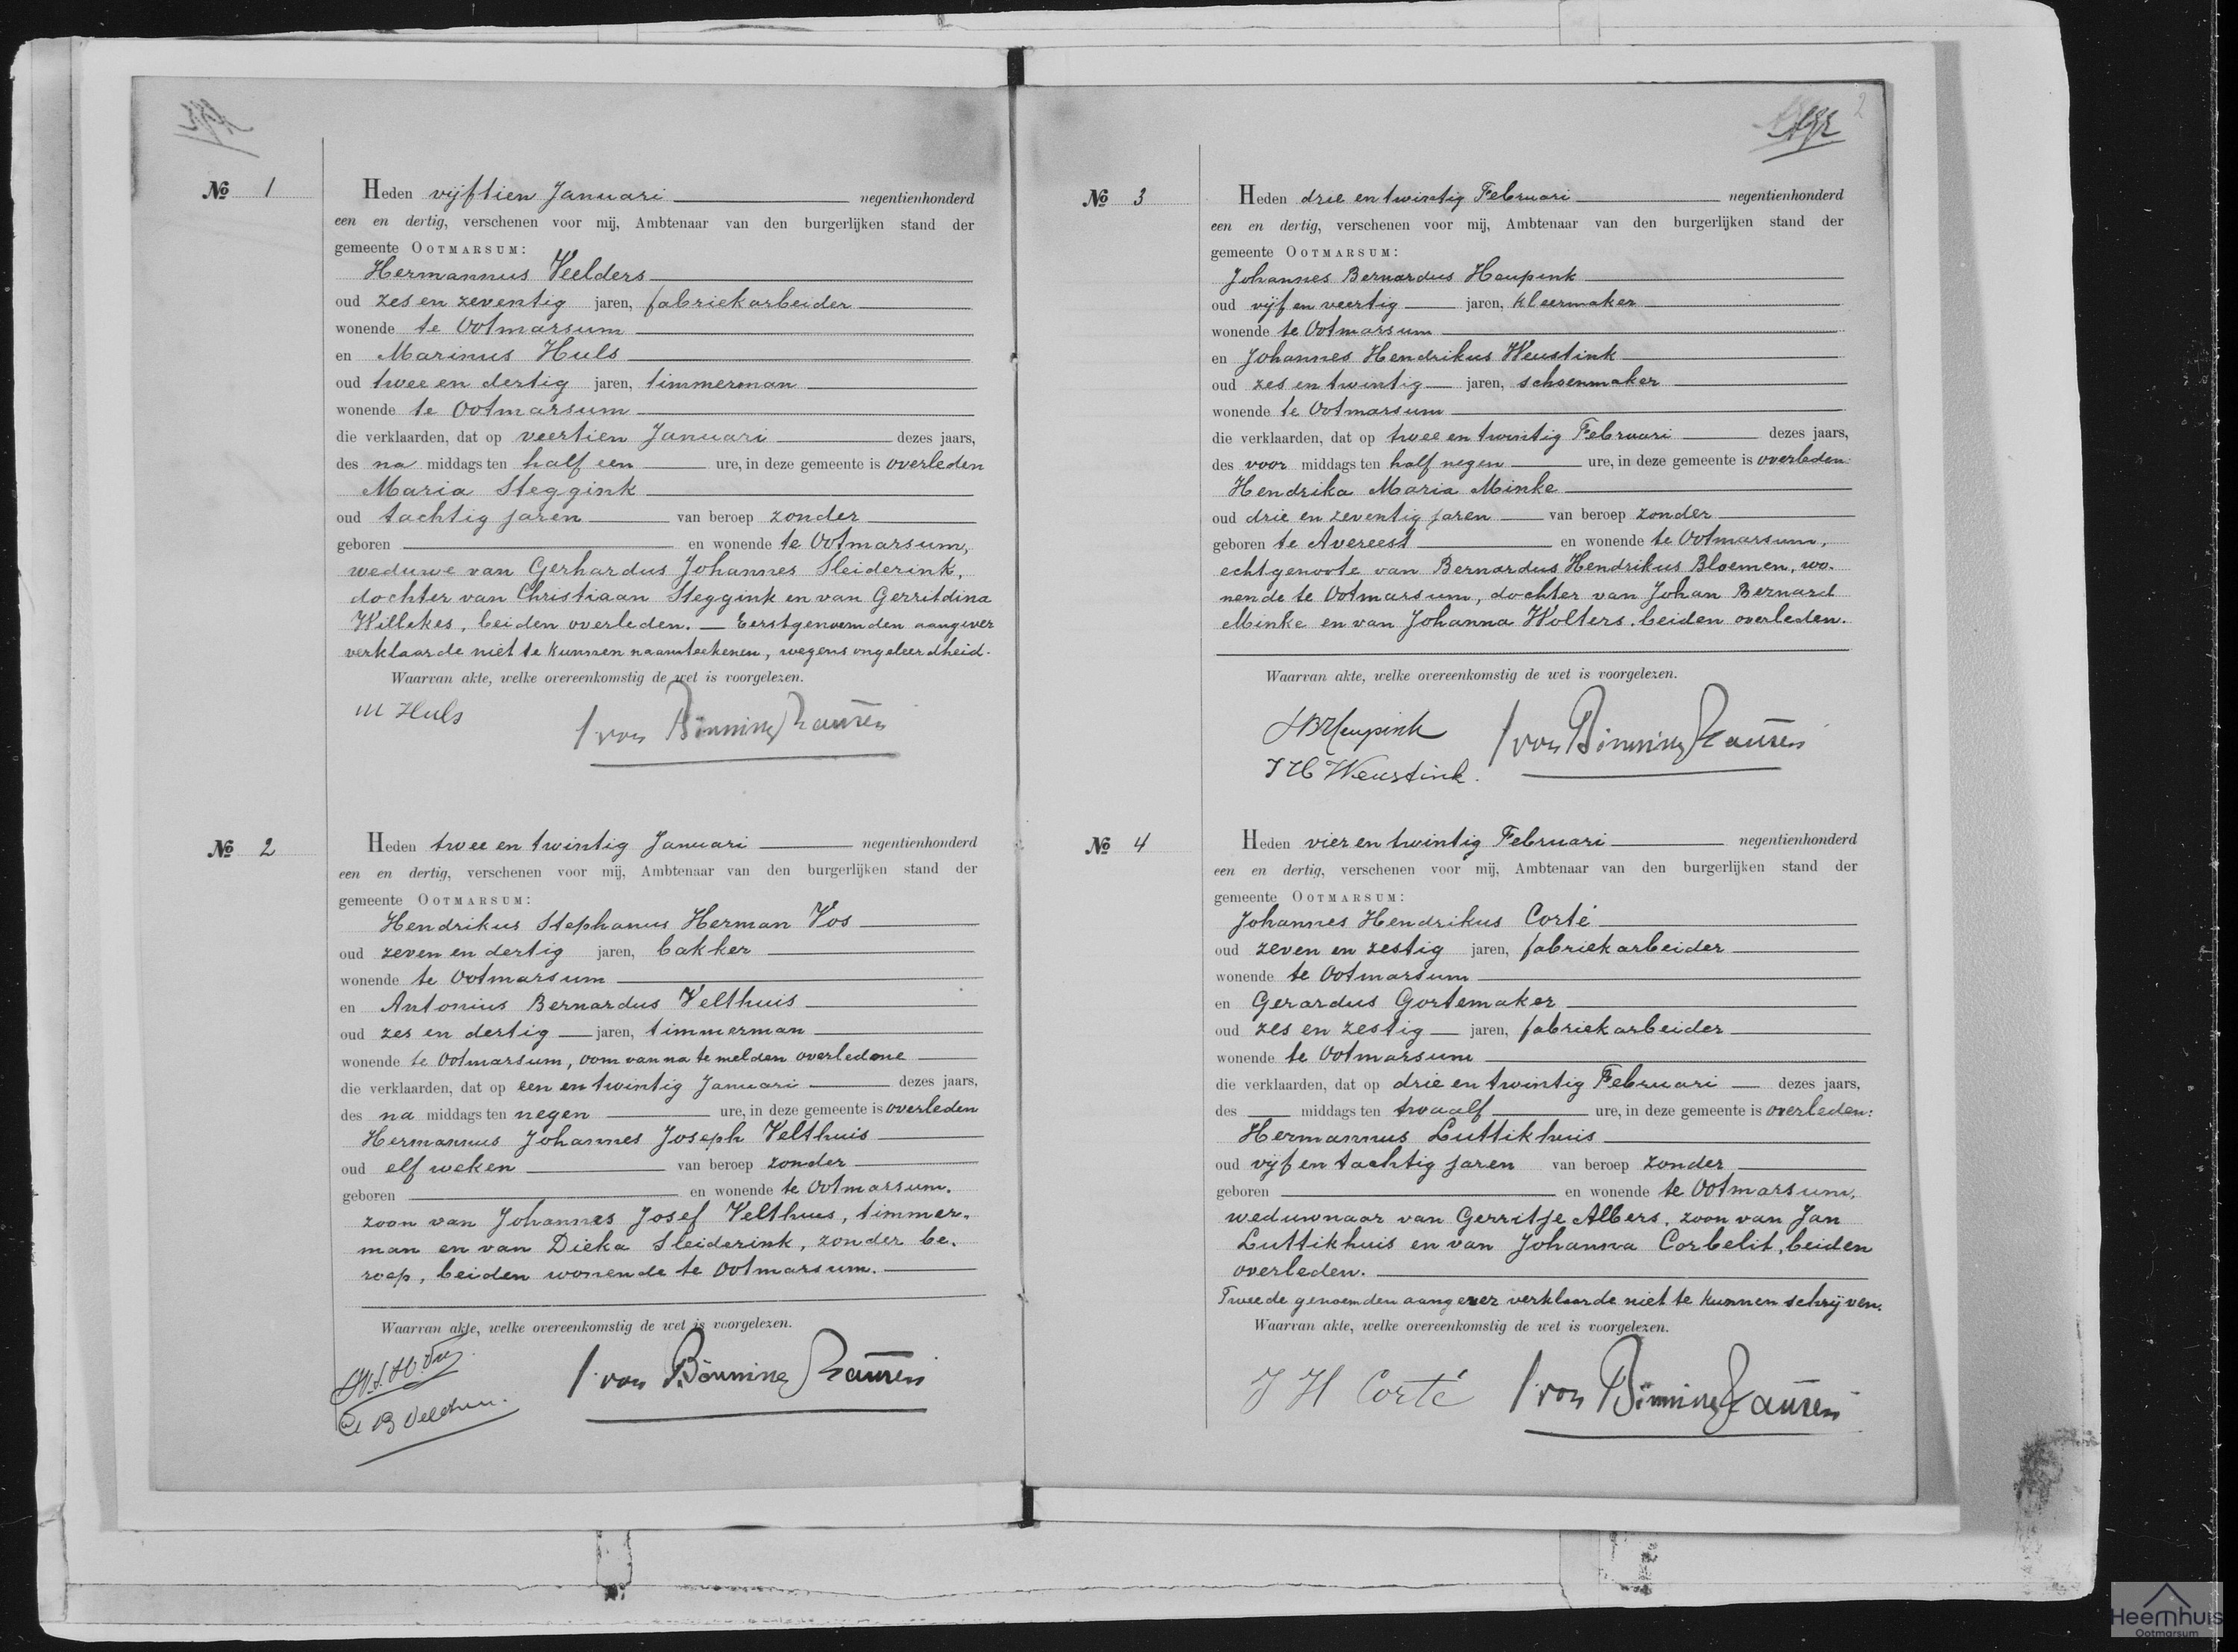 No 1
Heden vijftien Januari negentienhonderd
een en dertig, verschenen voor mij, Ambtenaar van den burgerlijken stand der
gemeente OOTMARSUM:
Hermannus Veelders
oud zes en zeventig jaren, fabriekarbeider
wonende te Ootmarsum
en Marinus Huls
oud twee en dertig jaren, timmerman
wonende te Ootmarsum
die verklaarden, dat op veertien Januari dezes jaars,
des na middags ten half een ure, in deze gemeente is overleden
Maria Steggink
oud tachtig jaren van beroep zonder
geboren en wonende te Ootmarsum,
weduwe van Gerhardus Johannes Sleiderink,
dochter van Christiaan Steggink en van Gerritdina
Willekes, beiden overleden. — Eerstgenoemden aangever
verklaarde niet te kunnen naamteekenen, wegens ongeleerdheid.
Waarvan akte, welke overeenkomstig de wet is voorgelezen.
M Huls
von Bönninghausen
No 2
Heden twee en twintig Januari negentienhonderd
een en dertig, verschenen voor mij, Ambtenaar van den burgerlijken stand der
gemeente OOTMARSUM:
Hendrikus Stephanus Herman Vos
oud zeven en dertig jaren, bakker
wonende te Ootmarsum
en Antonius Bernardus Velthuis
oud zes en dertig jaren, timmerman
wonende te Ootmarsum, oom van na te melden overledene
die verklaarden, dat op een en twintig Januari dezes jaars,
des na middags ten negen ure, in deze gemeente is overleden
Hermannus Johannes Joseph Velthuis
oud elf weken van beroep zonder
geboren en wonende te Ootmarsum.
zoon van Johannes Josef Velthuis, timmer-
man en van Dieka Sleiderink, zonder be-
roep, beiden wonende te Ootmarsum.
Waarvan akte, welke overeenkomstig de wet is voorgelezen.
H.S.H. Vos
von Bönninghausen
A B Velthuis
2
No 3
Heden drie en twintig Februari negentienhonderd
een en dertig, verschenen voor mij, Ambtenaar van den burgerlijken stand der
gemeente OOTMARSUM:
Johannes Bernardus Heupink
oud vijf en veertig jaren, kleermaker
wonende te Ootmarsum
en Johannes Hendrikus Weustink
oud zes en twintig jaren, schoenmaker
wonende te Ootmarsum
die verklaarden, dat op twee en twintig Februari dezes jaars,
des voor middags ten half negen ure, in deze gemeente is overleden:
Hendrika Maria Minke
oud drie en zeventig jaren van beroep zonder
geboren te Avereest en wonende te Ootmarsum,
echtgenoote van Bernardus Hendrikus Bloemen, wo-
nende te Ootmarsum, dochter van Johan Bernard
Minke en van Johanna Wolters, beiden overleden.
Waarvan akte, welke overeenkomstig de wet is voorgelezen.
J B Heupink
von Bönninghausen
J H Weustink.
No 4
Heden vier en twintig Februari negentienhonderd
een en dertig, verschenen voor mij, Ambtenaar van den burgerlijken stand der
gemeente OOTMARSUM:
Johannes Hendrikus Corté
oud zeven en zestig jaren, fabriekarbeider
wonende te Ootmarsum
en Gerardus Gortemaker
oud zes en zestig jaren, fabriekarbeider
wonende te Ootmarsum
die verklaarden, dat op drie en twintig Februari dezes jaars,
des middags ten twaalf ure, in deze gemeente is overleden:
Hermannus Luttikhuis
oud vijf en tachtig jaren van beroep zonder
geboren en wonende te Ootmarsum,
weduwnaar van Gerritje Albers, zoon van Jan
Luttikhuis en van Johanna Corbelit, beiden
overleden.
Tweede genoemden aangever verklaarde niet te kunnen schrijven.
Waarvan akte, welke overeenkomstig de wet is voorgelezen.
J H Corté
von Bönninghausen
Heemhuis
Ootmarsum